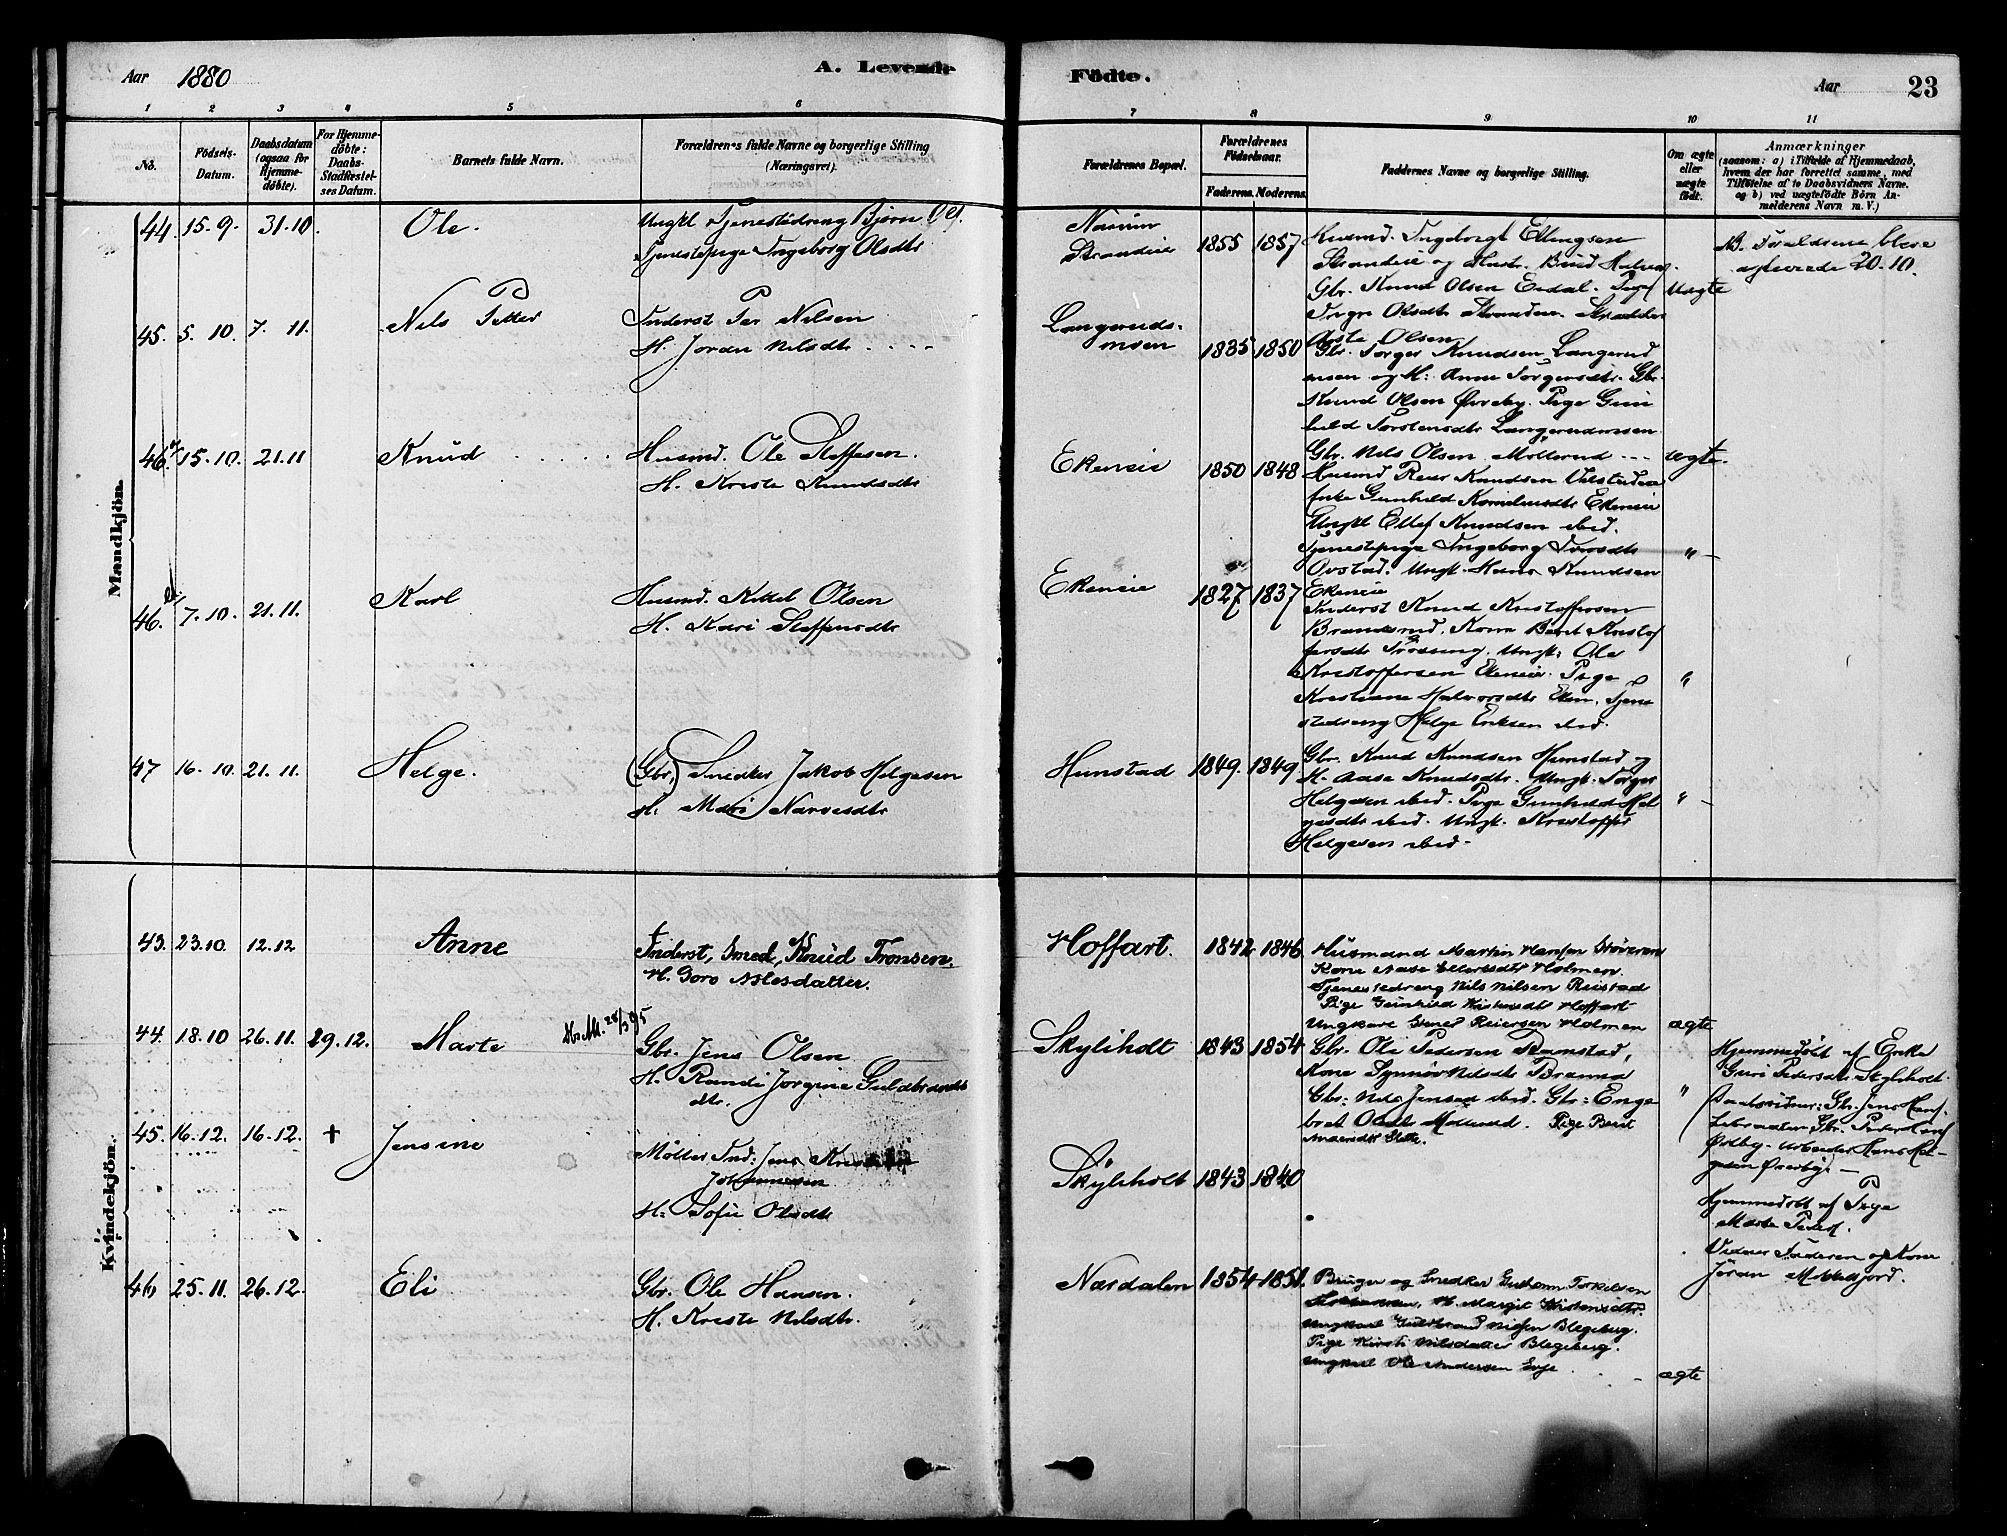 Aar 1880
A. Levende
Födte.
Aar
23
1 2 3 4 5 6 7 8 9 10 11
No.
Födsels-
Datum.
Daabsdatum
(ogsaa for
Hjemme-
döbte).
For Hjemme-
döbte:
Daabs-
Stadfæstel-
ses Datum.
Barnets fulde Navn.
Forældrenes fulde Navne og borgerlige Stilling
(Næringsvei).
Forældrenes Bopæl.
Forældrenes
Födselsaar.
Faderens. Moderens.
Faddernes Navne og borgerlige Stilling.
Om ægte
eller
uægte
födt.
Anmærkninger
(saasom: a) i Tilfælde af Hjemmedaab,
hvem der har forrettet samme, med
Tilföielse af to Daabsvidners Navne,
og b) ved uægtefödte Börn An-
melderens Navn m. V.)
Mandkjön.
44. 15.9. 31.10. Ole.
Ungkl Tjenestedreng Björn Ols.
Tjenestepige Ingeborg Olsdtr
Strandeie 1855 1857
Husmd. Ingebregt Ellingsen
Strandeie og Hustr.
Gbr. Knud Olsen Eidal. Pige
Olsdtr Strandeie
Uægte
NB. Forældrene bleve
ægteviede 20.10.
45. 5.10. 7.11. Nils Petter
Inderst Per Nilsen
H. Joran Nilsdtr
Langeruds-
onsen 1835 1850
Olsen
Gbr. Torger Knudsen Langerud
onsen og H: Anne Torgersdtr. Gbr.
Knud Olsen Överby. Pige Gun
hild Torstensdtr Langerudonsen
Gbr. Nils Olsen Mollerud ægte.
46 a/ 15.10. 21.11 Knud
Husmd. Ole Steffesen.
H. Kriste Knudsdtr
Ekeneie 1850 1848
Husmd Knudsen
Enke Gunhild Ekeneie
Ungkl Ellef Knudsen ibid.
Tjenestepige Ingeborg Iversdtr "
Ovstad. Ungk. Hans Knudsen
Ekeneie
46. b/ 7.10. 21.11. Karl
Husmd. Kittel Olsen
H. Kari Steffensdtr
Ekeneie 1827 1837
Inderst Knud Kristoffersen
Brandsrud. Kone Berit Kristof
fersdtr Ungk: Ole
Kristoffersen Ekeneie. Pige "
Kristiane Halvorsdtr Eken. Tjene
stedreng Helge Eriksen ibid.
47 16.10. 21.11. Helge.
(Gbr.) Snedker Jakob Helgesen
H. Mari Narvesdtr
Hunstad 1849. 1849.
Gbr. Knud Knudsen Hunstad og
H. Aase Knudsdtr. Ungk. Torger
Helgesen ibid. Pige Gunhild Hel "
gesdtr ibid. Ungk. Kristoffer
Helgesen ibid.
Kvindekjön.
43. 23.10. 12.12 Anne
Inderst, Smed, Knud Tronsen.
H. Goro Aslesdatter.
Hoffart. 1842 1846.
Husmand Martin Hansen
Kone Aase Ellefsdtr Holmen.
Tjenestedreng Nils Nilsen Ristad
Pige Gunhild Kristensdtr Hoffart
Ungkarl Reiersen Holmen ægte
44. 18.10 26.11. 29.12. Marte
Gbr. Jens Olsen
H. Randi Jorgine Guldbrands
dtr.
Skyliholt 1843 1854
Gbr. Ole Pedersen Ramstad,
Kone Synnöv Nilsdtr
Gbr: Nils Jensen ibid. Gbr: Enge "
bret Mollerud. Pige Berit
Hjemmedöbt af Enke
Guri Pedersdtr. Skyliholt.
Daabsvidner: Gbr. Jens Hans.
Gbr. Peder Hans
Østby. Arbeider Hans Hel-
gesen Överby.
45. 16.12. 16.12. † Jensine
Möller Ind: Jens
Johannesen
H: Sofie Olsdtr
Skyliholt 1843 1840
Hjemmedöbt af Pige
Marte Peders.
Vidner Faderen og Kone
Jöran
46 25.11. 26.12. Eli
Gbr. Ole Hansen.
H. Kriste Nilsdtr.
Nærdalen 1854 1851.
Bruger og Smedker Guttorm Torkilsen
H. Margit Kristensdtr.
Ungkarl Guldbrand Nilsen Blegeberg.
Pige Kirsti Nilsdatter Blegeberg.
Ungkarl Ole Andersen Evje ægte